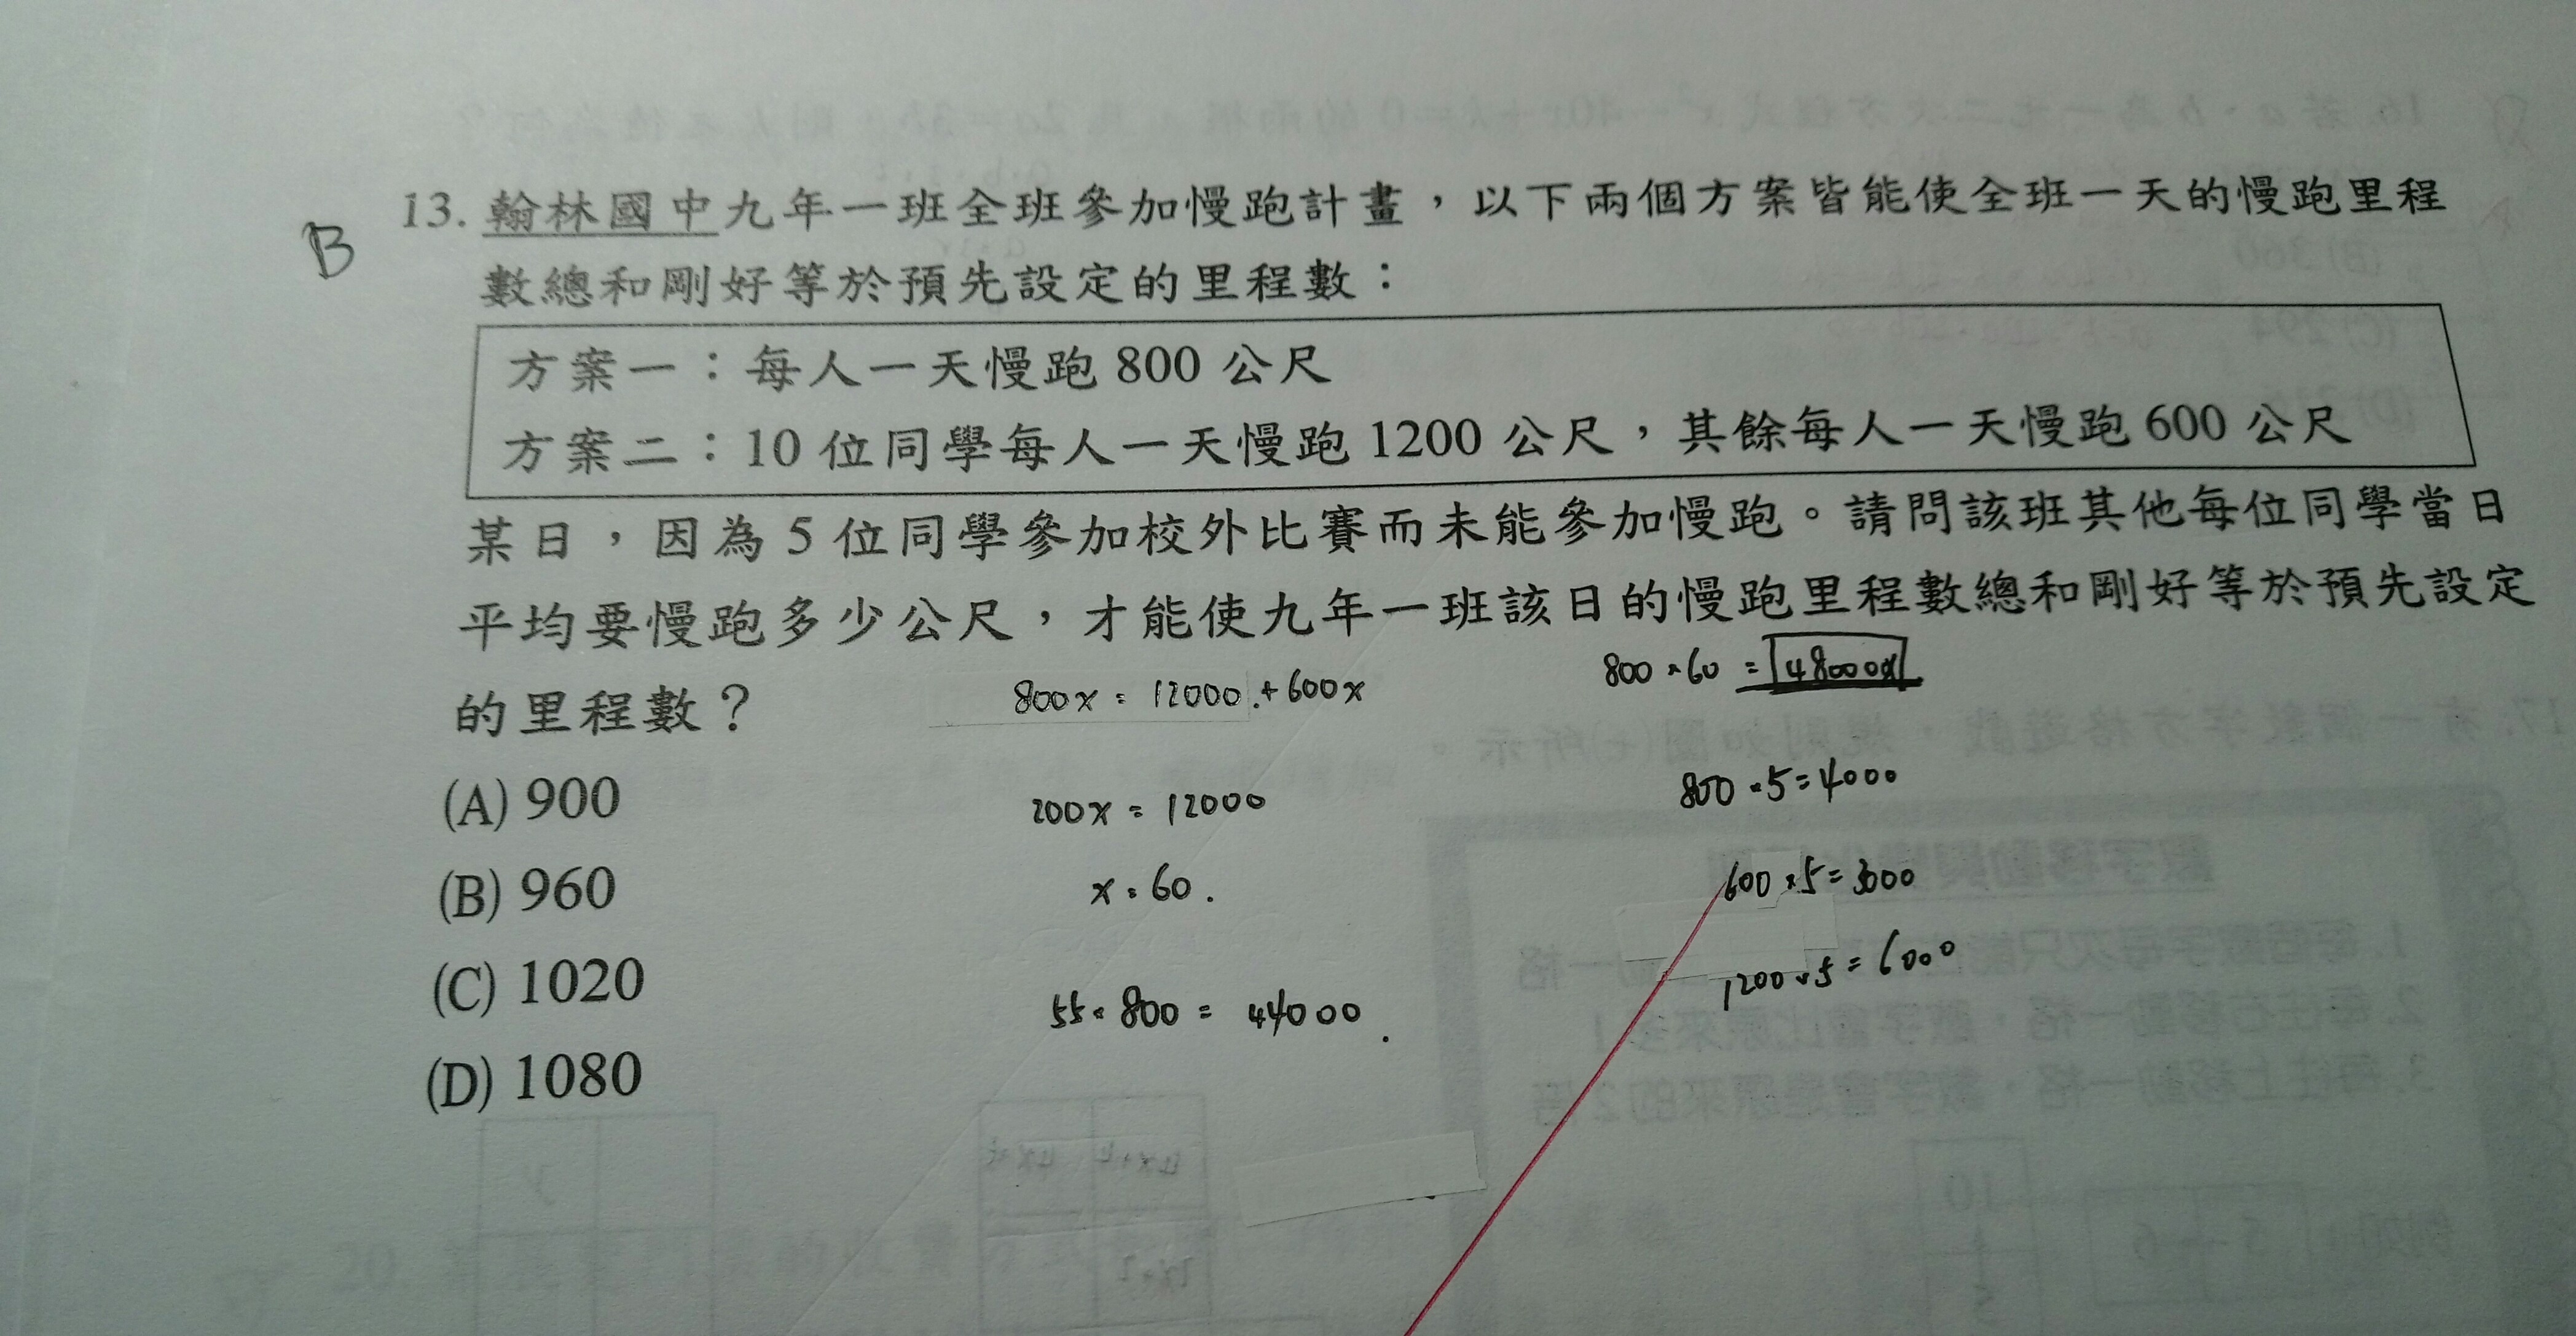 B
13. 翰林國中九年一班全班參加慢跑計畫，以下兩個方案皆能使全班一天的慢跑里程
數總和剛好等於預先設定的里程數：
方案一：每人一天慢跑 800 公尺
方案二：10 位同學每人一天慢跑 1200 公尺，其餘每人一天慢跑 600 公尺
某日，因為 5 位同學參加校外比賽而未能參加慢跑。請問該班其他每位同學當日
平均要慢跑多少公尺，才能使九年一班該日的慢跑里程數總和剛好等於預先設定
的里程數？
800x = 12000 + 600x
800 × 60 = 48000
(A) 900
200x = 12000
800 × 5 = 4000
(B) 960
x = 60.
600 × 5 = 3000
(C) 1020
55 × 800 = 44000.
1200 × 5 = 6000
(D) 1080